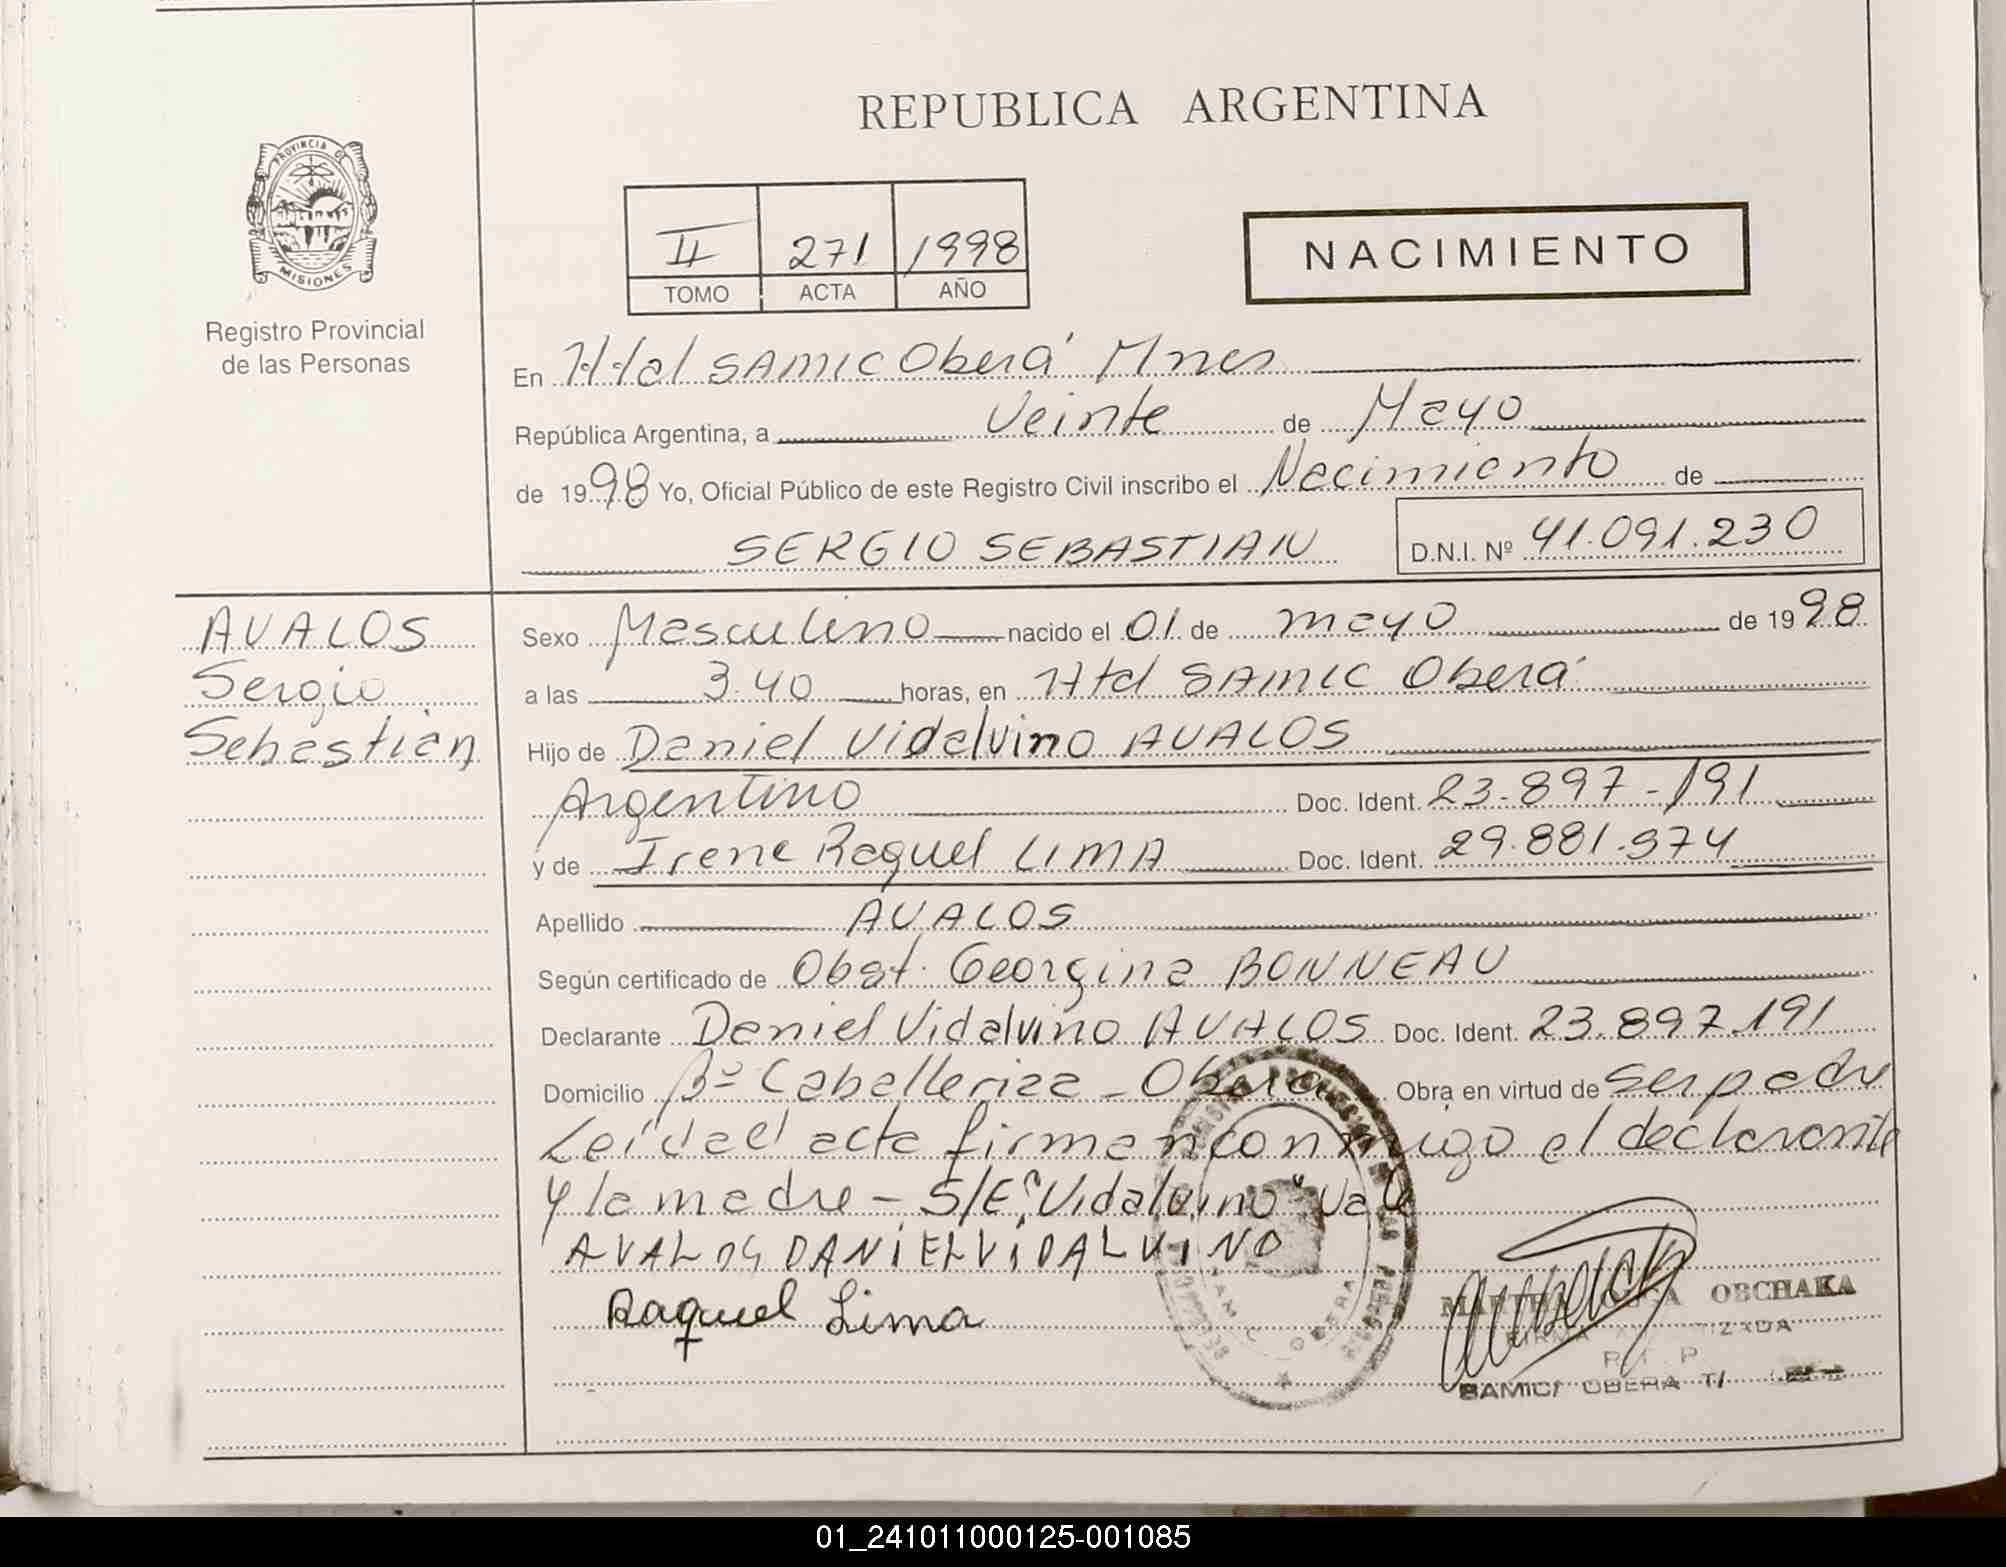 REPUBLICA ARGENTINA
PROVINCIA DE
MISIONES
Registro Provincial
de las Personas
II 271 1998
TOMO ACTA AÑO
NACIMIENTO
En Htal SAMIC Oberá Mnes
República Argentina, a Veinte de Mayo
de 1998 Yo, Oficial Público de este Registro Civil inscribo el Nacimiento de
SERGIO SEBASTIAN D.N.I. Nº 41.091.230
AVALOS
Sergio
Sebastián
Sexo Masculino nacido el 01 de mayo de 1998
a las 3.40 horas, en Htal SAMIC Oberá
Hijo de Daniel Vidalvino AVALOS
Argentino Doc. Ident. 23.897.191
y de Irene Raquel LIMA Doc. Ident. 29.881.974
Apellido AVALOS
Según certificado de Obst. Georgina BONNEAU
Declarante Daniel Vidalvino AVALOS Doc. Ident. 23.897.191
Domicilio Bº Caballeriza - Oberá Obra en virtud de ser padre
Leída el acta firman conmigo el declarante
y la madre - S/E: "Vidalvino" Vale
AVALOS DANIEL VIDALVINO
Raquel Lima
OBCHAKA
SAMIC OBERA
01_241011000125-001085